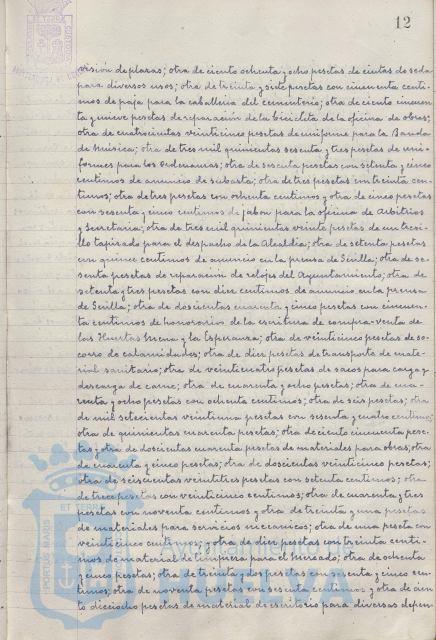 12
visión de plazas; otra de ciento ochenta y ocho pesetas de cintas de seda
para diversos usos; otra de treinta y siete pesetas con cincuenta centi-
mos de paja para la caballeria del cementerio; otra de ciento cincuen-
ta y nueve pesetas de reparación de la bicicleta de la oficina de obras;
otra de cuatrocientas veinticinco pesetas de uniforme para la Banda
de Musica; otra de tres mil quinientas sesenta y tres pesetas de uni-
formes para los ordenanzas; otra de sesenta pesetas con setenta y cinco
centimos de anuncio de subasta; otra de tres pesetas con treinta cen-
timos; otra de tres pesetas con ochenta centimos y otra de cinco pesetas
con sesenta y cinco centimos de jabon para la oficina de Arbitrios
y Secretaria; otra de tres mil quinientas veinte pesetas de un tresi-
llo tapizado para el despacho de la Alcaldia; otra de setenta pesetas
con quince centimos de anuncio en la prensa de Sevilla; otra de se-
senta pesetas de reparación de relojes del Ayuntamiento; otra de
setenta y tres pesetas con diez centimos de anuncio en la prensa
de Sevilla; otra de doscientas cuarenta y cinco pesetas con cincuen-
ta centimos de honorarios de la escritura de compra-venta de
las Huertas Mena y la Esperanza; otra de veinticinco pesetas de so-
corro de calamidades; otra de diez pesetas de transporte de mate-
rial sanitario; otra de veinticuatro pesetas de sacos para carga y
descarga de carne; otra de cuarenta y ocho pesetas; otra de cua-
renta y ocho pesetas con ochenta centimos; otra de seis pesetas; otra
de mil setecientas veintiuna pesetas con sesenta y cuatro centimos;
otra de quinientas cuarenta pesetas; otra de ciento cincuenta pese-
tas y otra de doscientas cuarenta pesetas de materiales para obras; otra
de cuarenta y cinco pesetas; otra de doscientas veinticinco pesetas;
otra de seiscientas veintitres pesetas con setenta centimos; otra
de trece pesetas con veinticinco centimos; otra de cuarenta y tres
pesetas con noventa centimos y otra de treinta y una pesetas
de materiales para servicios mecanicos; otra de una peseta con
veinticinco centimos; y otra de diez pesetas con treinta centi-
mos de material de limpieza para el Mercado; otra de ochenta
y cinco pesetas; otra de treinta y dos pesetas con sesenta y cinco cen-
timos; otra de noventa pesetas con sesenta centimos y otra de cien-
to dieciocho pesetas de material de escritorio para diversas depen-
PORTUS MARIS ET
HUELVA